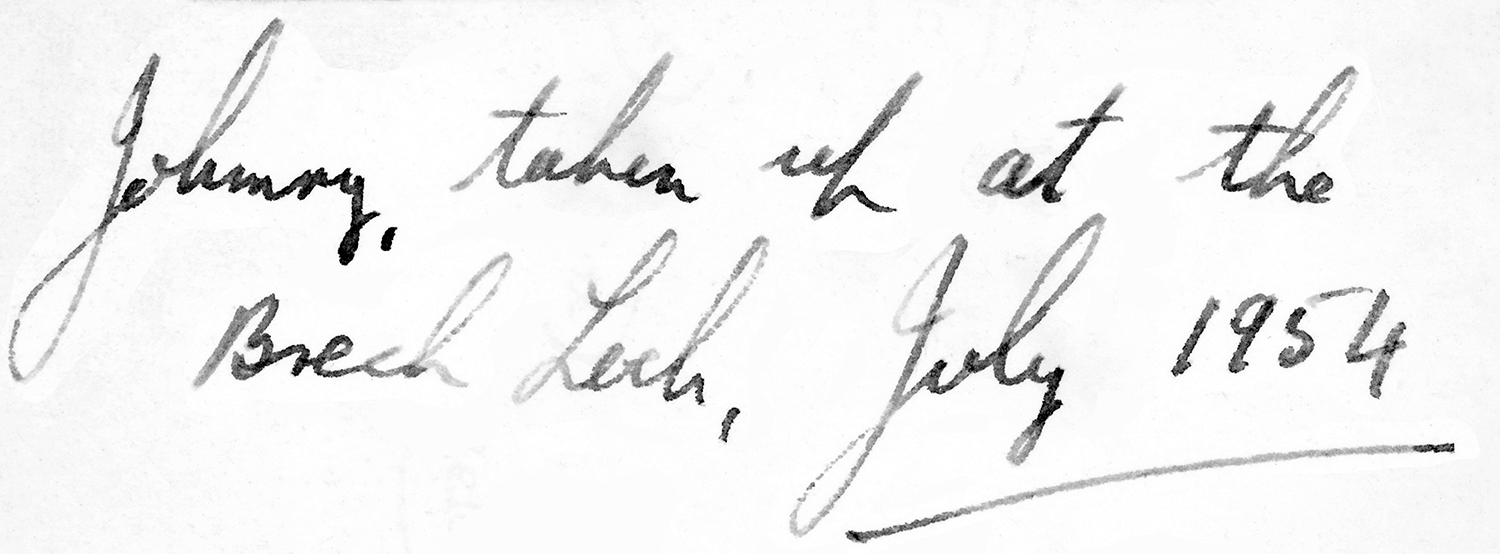 Johnny, taken up at the
Brech Loch, July 1954